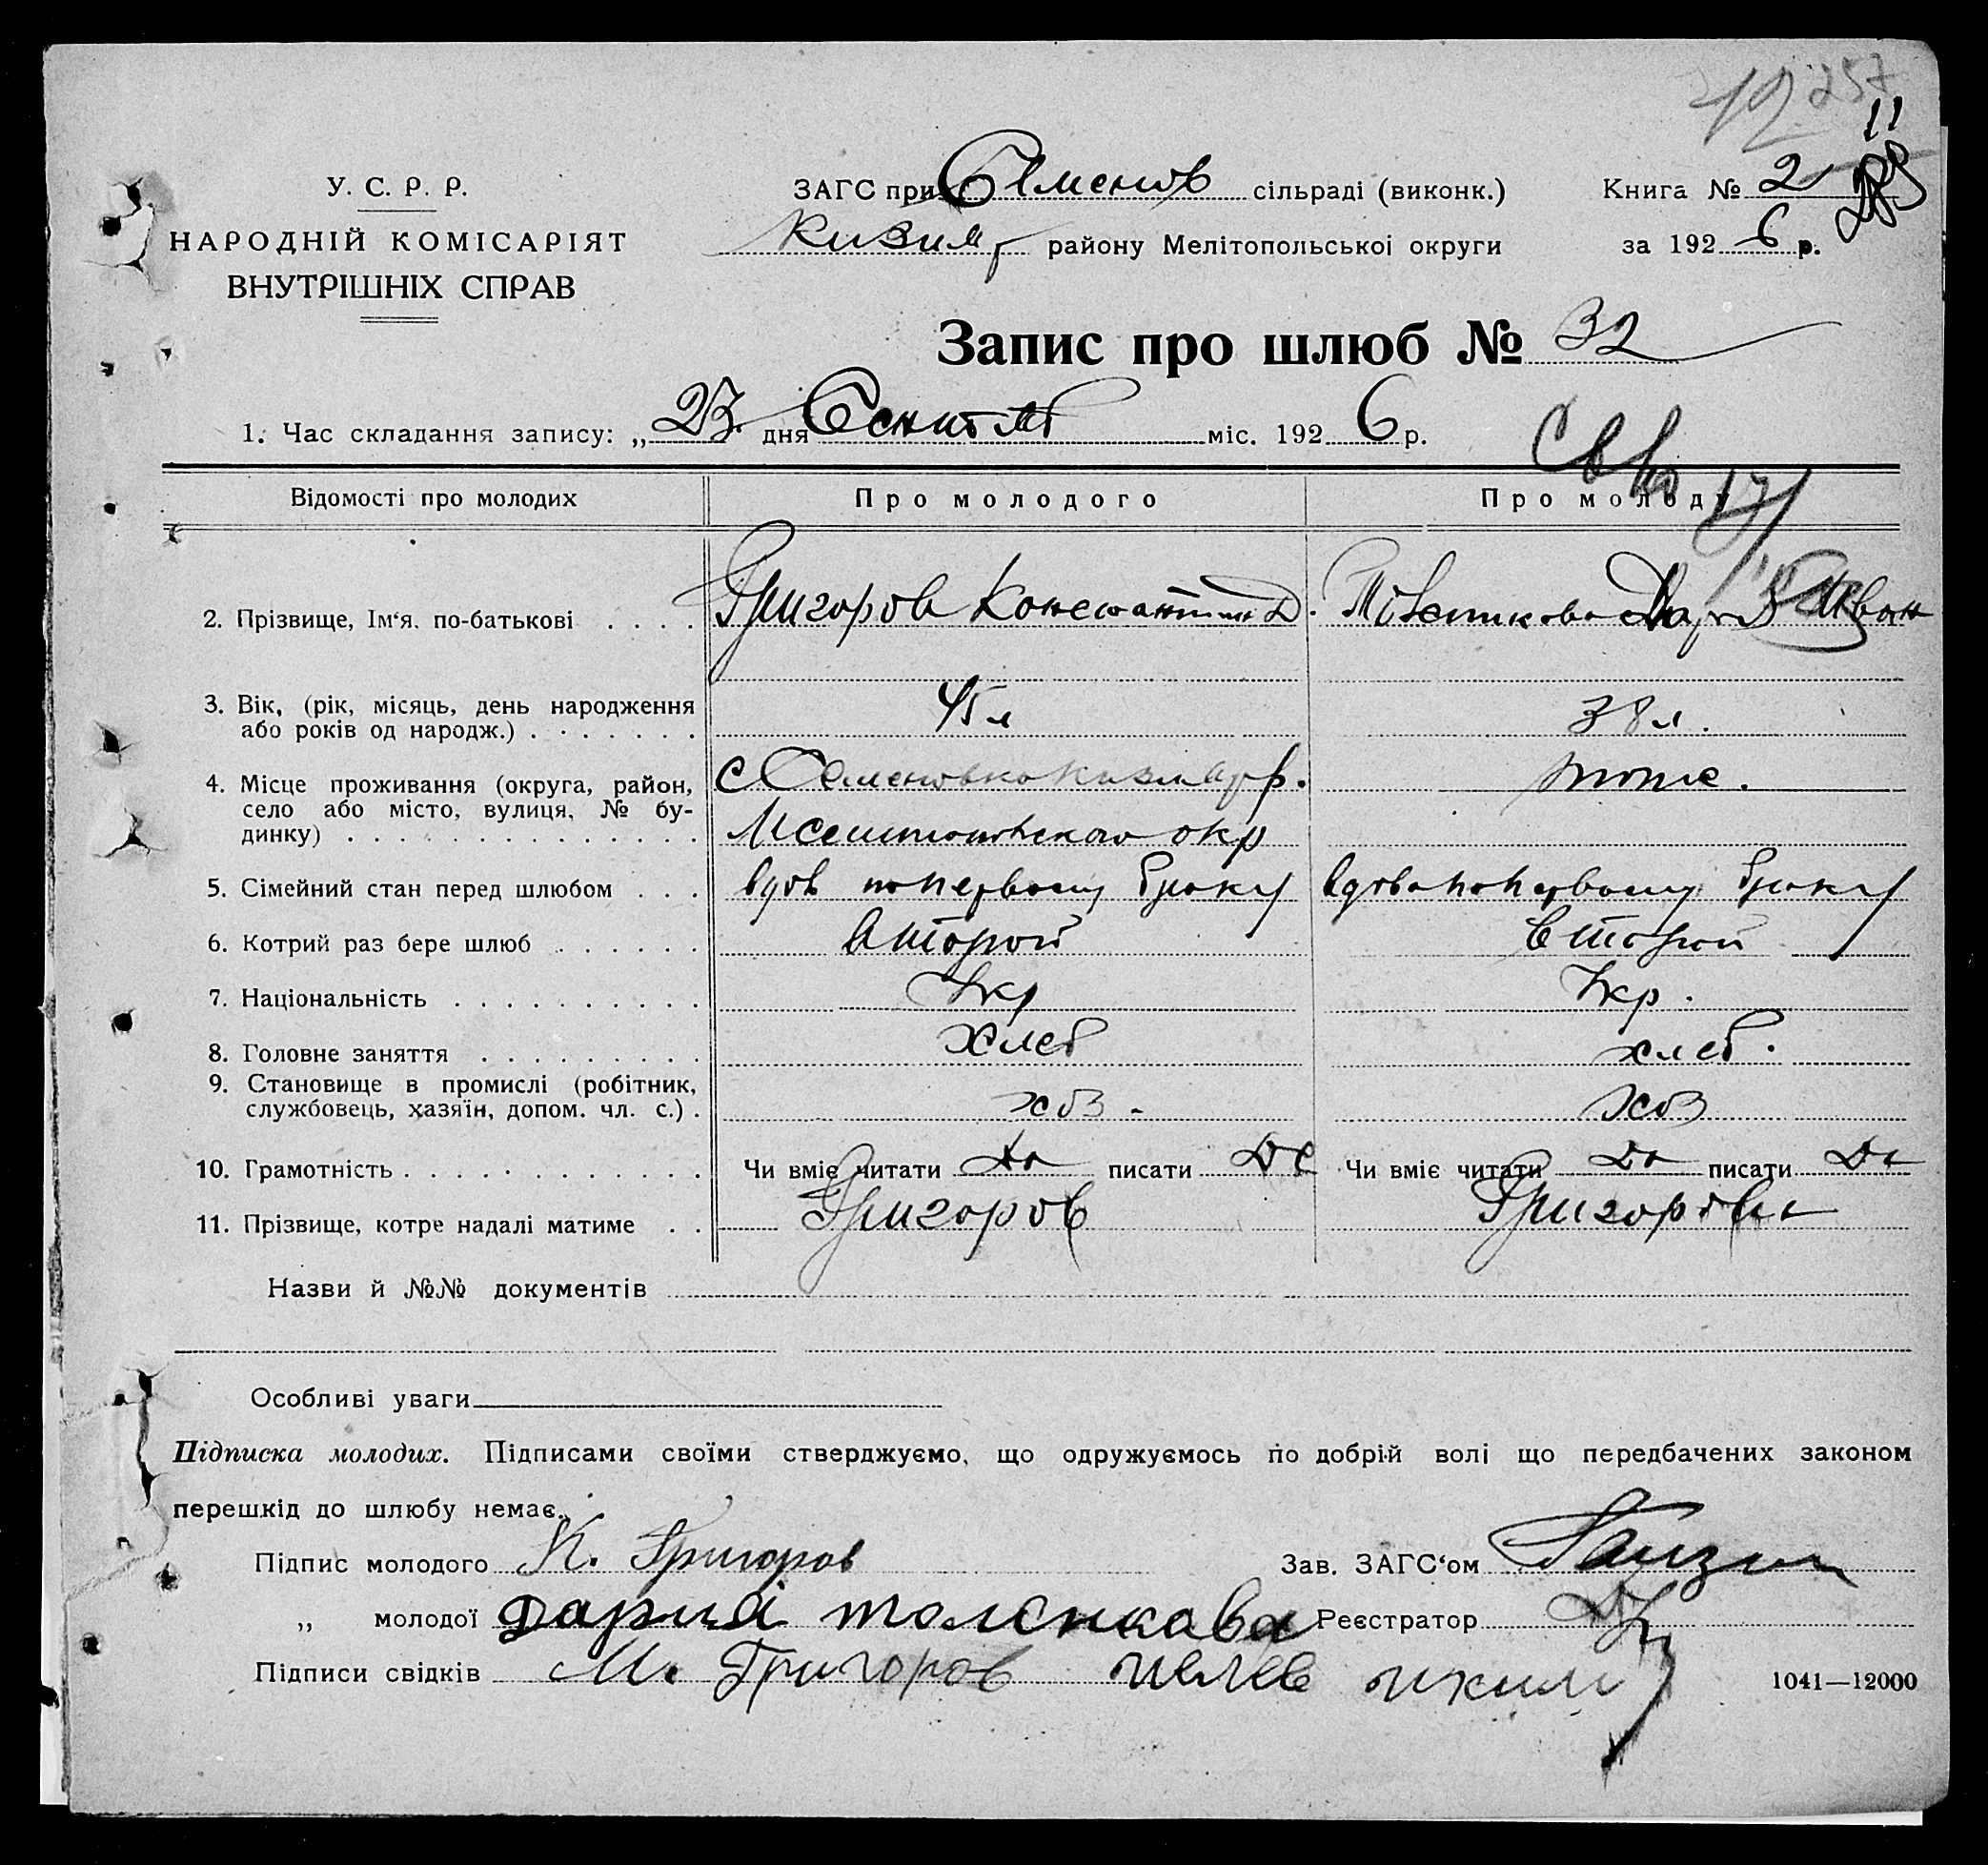 257
11
У. С. Р. Р.
ЗАГС при Семенов сільраді (виконк.)
Книга № 2
НАРОДНІЙ КОМІСАРІЯТ
Кизияр району Мелітопольської округи
за 1926 р.
ВНУТРІШНІХ СПРАВ
Запис про шлюб № 32
1. Час складання запису: „ 23 дня Сентяб міс. 1926 р.
Відомості про молодих
Про молодого
Про молоду
2. Прізвище, Ім‘я, по-батькові . . . .
Григоров Константин Д.
Иван
3. Вік, (рік, місяць, день народження
або років од народж.) . . . . . . .
45 л
38 л.
4. Місце проживання (округа, район,
село або місто, вулиця, № бу-
динку) . . . . . . . . . . . . . .
с Семеновка Кизиярр.
Мелитопольского окр
тоже.
5. Сімейний стан перед шлюбом . . .
вдов по первому браку
вдова по первому браку
6. Котрий раз бере шлюб . . . . . .
второй
второй
7. Національність . . . . . . . . . .
Укр
Укр.
8. Головне заняття . . . . . . . . .
Хлеб
хлеб.
9. Становище в промислі (робітник,
службовець, хазяїн, допом. чл. с.) .
хоз -
хоз
10. Грамотність . . . . . . . . . . . .
Чи вміє читати да писати да
Чи вміє читати да писати да
11. Прізвище, котре надалі матиме . .
Григоров
Григорова
Назви й №№ документів
Особливі уваги
Підписка молодих. Підписами своїми стверджуємо, що одружуємось по добрій волі що передбачених законом
перешкід до шлюбу немає.
Підпис молодого К. Григоров
Зав. ЗАГС‘ом
„ молодої Дария
Реєстратор
Підписи свідків М. Григоров
1041—12000